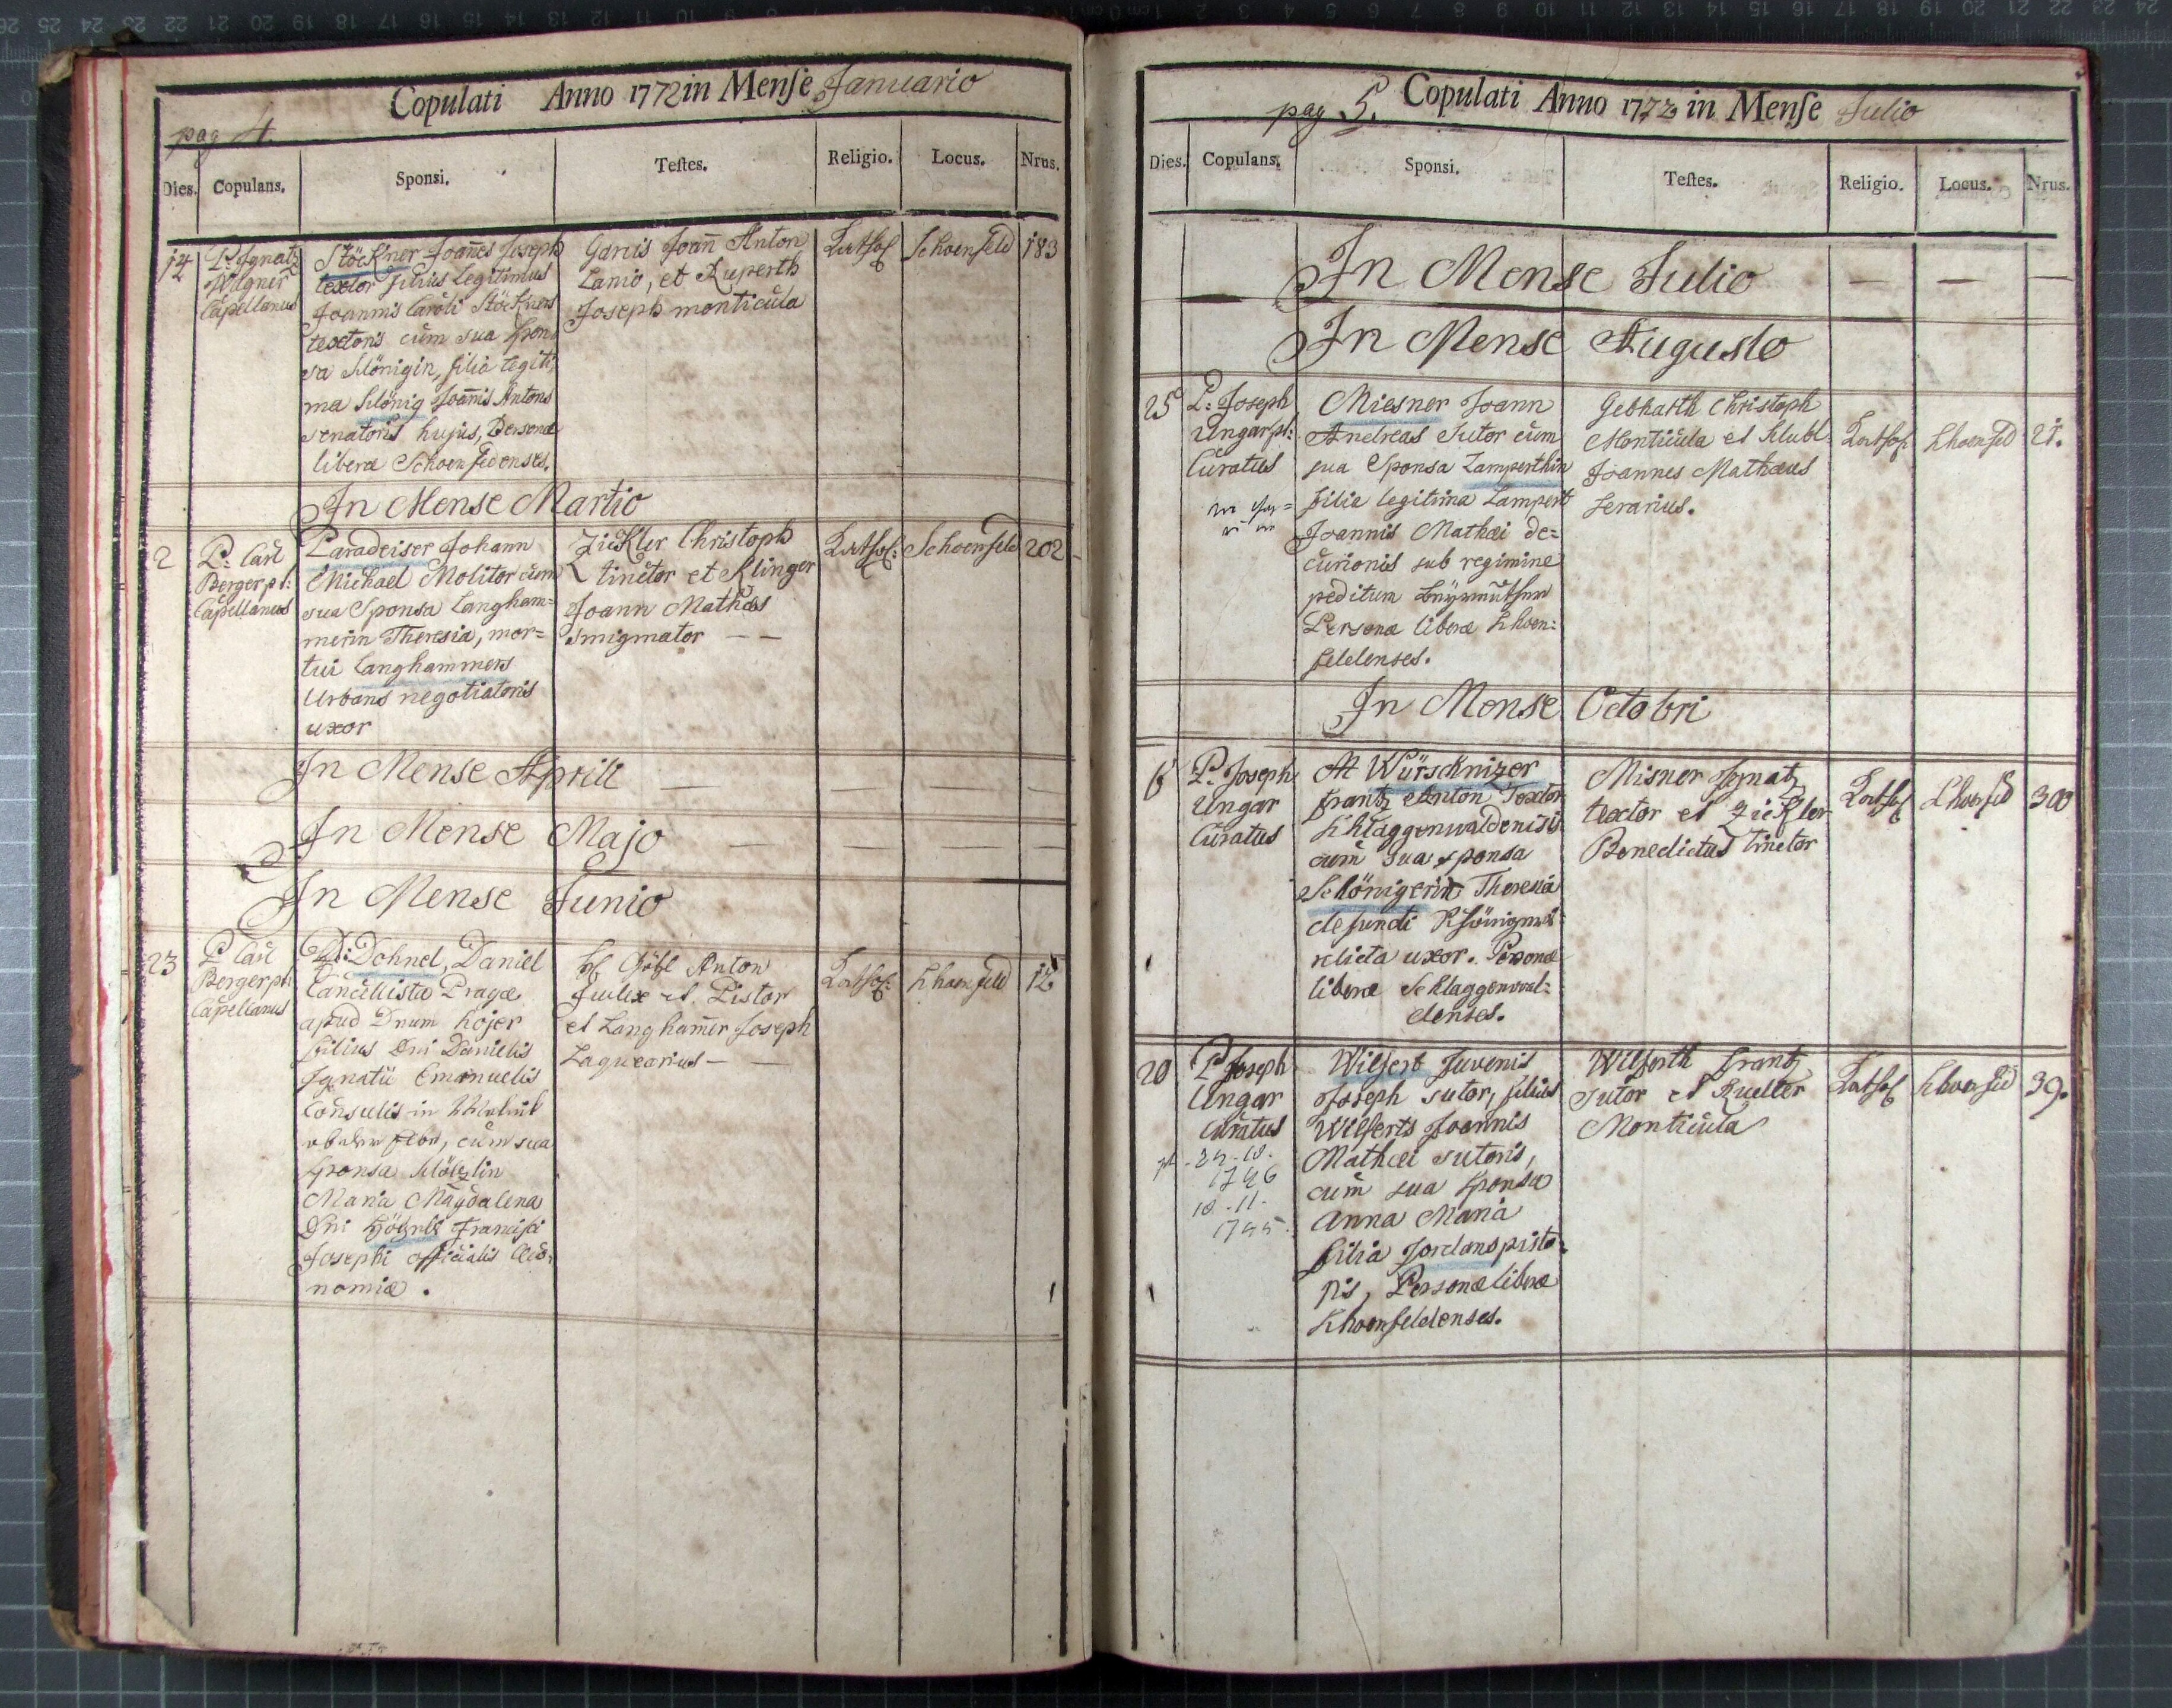 Copulati Anno 1772 in Mense Januario
pag 4.
Dies. Copulans. Sponsi. Testes. Religio. Locus. Nrus.
14
P. Ignatz
Wagner
Capellanus
Stöckner Joañes Joseph
textor filius Legitimus
Joannis Caroli Stöckners
textoris cum sua Spon
sa Schönigin, filia legiti,
ma Schönig Joañis Antons
senatoris hujus, Personæ
liberæ Schoenfedenses.
Garcis Joañ Anton
Lanio, et Ruperth
Joseph monticula
Schoenfeld
183
In Mense Martio
2
P. Carl
Berger pl:
Capellanus
Paradeiser Johann
Michael Molitor cum
sua Sponsa Langham=
merin Theresia, mor=
tui Langhammers
Urbans negotiatoris
uxor
Zickler Christoph
tinctor et Klinger
Joann Mathæs
smigmator — —
Schoenfeld
202
In Mense Aprili —
In Mense Majo —
In Mense Junio
23
P Carl
Berger pl:
Capellanus
D: Dohnel, Daniel
Cancellista Pragæ
apud Dnum hojer
filius Dni Danielis
Ignatii Emanuelis
Consulis in
cum sua
Sponsa
Maria Magdalena
Dni Francisci
Josephi officialis Oeco,
nomiæ.
Anton
Judex et Pistor
et Langhamer Joseph
Laquearius — —
12
pag 5. Copulati Anno 1772 in Mense Julio
Dies. Copulans. Sponsi. Testes. Religio. Locus. Nrus.
In Mense Julio — — —
In Mense Augusto
25
P: Joseph
Ungar pl:
Curatus
Miesner Joann
Andreas Sutor cum
sua Sponsa Lamperthin
filia legitima Lampert
Joannis Mathæi de=
curionis sub regimine
peditum
Personæ liberæ Schoen:
feldenses.
Gebharth Christoph
Monticula et
Joannes Mathæus
serarius.
21.
In Mense Octobri
6
P. Joseph
Ungar
Curatus
Würschnizer
frantz Anton Textor
Schlaggenwaldensis
cum sua sponsa
Schönigerin Theresia
defuncti
relicta uxor. Personæ
liberæ Schlaggenwal=
denses.
Misner Ignatz
textor et Zickler
Benedictus tinctor
300
20
P Joseph
Ungar
Curatus
29-10.
1746
10-11-
Wilfert Juvenis
Joseph sutor, filius
Wilferts Joannis
Mathæi sutoris,
cum sua Sponsa
Anna Maria
filia Jordans pisto=
ris, Personæ liberæ
Schoenfeldenses.
Wilferth frantz
sutor et Rueller
Monticula
39.